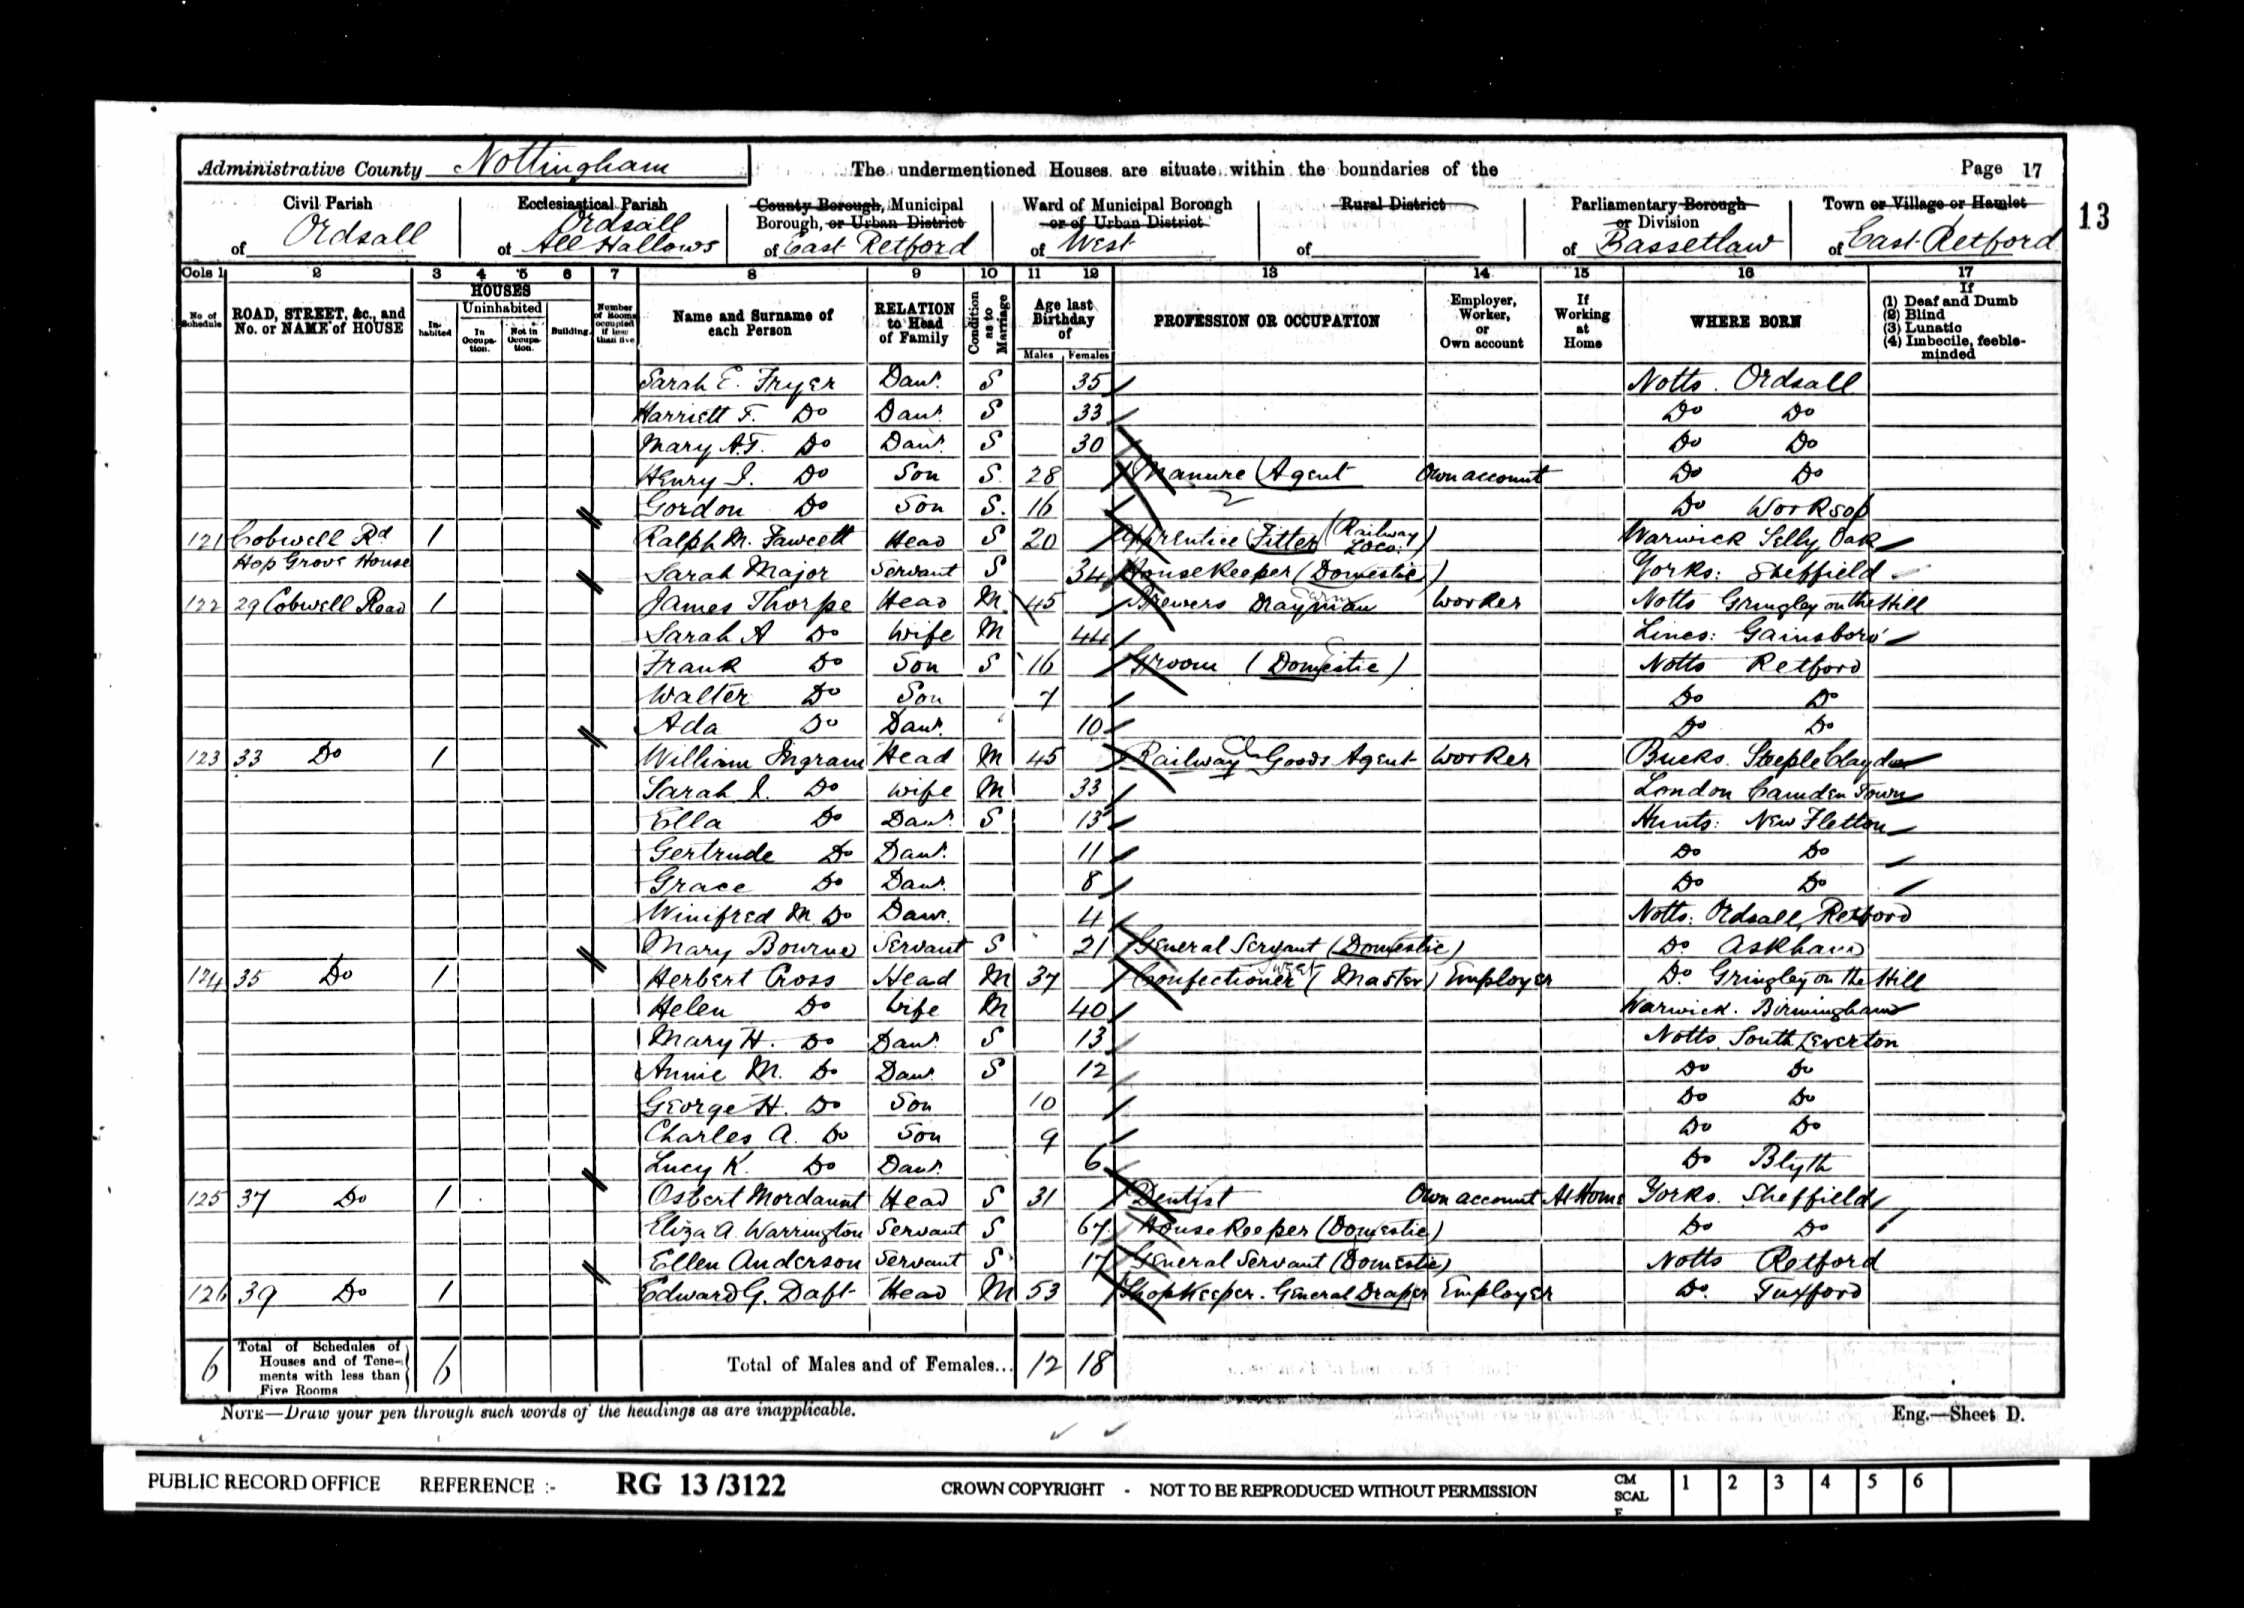 Administrative County Nottingham The undermentioned Houses are situate within the boundaries of the Page 17
13
Civil Parish of Ordsall
Ecclesiastical Parish of Ordsall All Hallows
County Borough, Municipal Borough, or Urban District of East Retford
Ward of Municipal Borough or of Urban District of West
Rural District of
Parliamentary Borough or Division of Bassetlaw
Town or Village or Hamlet of East Retford
Cols 1 2 3 4 5 6 7 8 9 10 11 12 13 14 15 16 17
No. of Schedule
ROAD, STREET, &c., and No. or NAME of HOUSE
HOUSES
Inhabited
Uninhabited
In Occupation.
Not in Occupation.
Building.
Number of Rooms occupied if less than five
Name and Surname of each Person
RELATION to Head of Family
Condition as to Marriage
Age last Birthday of
Males Females
PROFESSION OR OCCUPATION
Employer, Worker, or Own account
If Working at Home
WHERE BORN
If
(1) Deaf and Dumb
(2) Blind
(3) Lunatic
(4) Imbecile, feeble-minded
Sarah E. Fryer Daur. S 35 Notts. Ordsall
Harriett F. Do Daur. S 33 Do Do
Mary A.F. Do Daur. S 30 Do Do
Henry J. Do Son S. 28 Manure Agent Own account Do Do
Gordon Do Son S. 16 Do Worksop
121 Cobwell Rd 1 Ralph M. Fawcett Head S 20 Apprentice Fitter (Railway Loco:) Warwick Selly Oak
Hop Grove House Sarah Major Servant S 34 Housekeeper (Domestic) Yorks: Sheffield
122 29 Cobwell Road 1 James Thorpe Head M. 45 Brewers Drayman Worker Notts Gringley on the Hill
Sarah A Do Wife M 44 Lincs: Gainsboro'
Frank Do Son S 16 Groom (Domestic) Notts Retford
Walter Do Son 7 Do Do
Ada Do Daur. 10 Do Do
123 33 Do 1 William Ingram Head M 45 Railway Goods Agent Worker Bucks. Steeple Claydon
Sarah J. Do Wife M 33 London Camden Town
Ella Do Daur. S 13 Hunts: New Fletton
Gertrude Do Daur. 11 Do Do
Grace Do Daur. 8 Do Do
Winifred M Do Daur. 4 Notts: Ordsall, Retford
Mary Bourne Servant S 21 General Servant (Domestic) Do. Askham
124 35 Do 1 Herbert Cross Head M 37 Confectioner Sweet (Master) Employer Do. Gringley on the Hill
Helen Do Wife M 40 Warwick. Birmingham
Mary H. Do Daur. S 13 Notts. South Leverton
Annie M. Do Daur. S 12 Do Do
George H. Do Son 10 Do Do
Charles A. Do Son 9 Do Do
Lucy K. Do Daur. 6 Do Blyth
125 37 Do 1 Osbert Mordaunt Head S 31 Dentist Own account At Home Yorks. Sheffield
Eliza A. Warrington Servant S 67 Housekeeper (Domestic) Do Do
Ellen Anderson Servant S 17 General Servant (Domestic) Notts Retford
126 39 Do 1 Edward G. Daft Head M 53 Shopkeeper. General Draper Employer Do. Tuxford
6 Total of Schedules of Houses and of Tenements with less than Five Rooms 6 Total of Males and of Females... 12 18
NOTE—Draw your pen through such words of the headings as are inapplicable.
Eng.—Sheet D.
PUBLIC RECORD OFFICE REFERENCE :- RG 13/3122 CROWN COPYRIGHT - NOT TO BE REPRODUCED WITHOUT PERMISSION CM SCALE 1 2 3 4 5 6